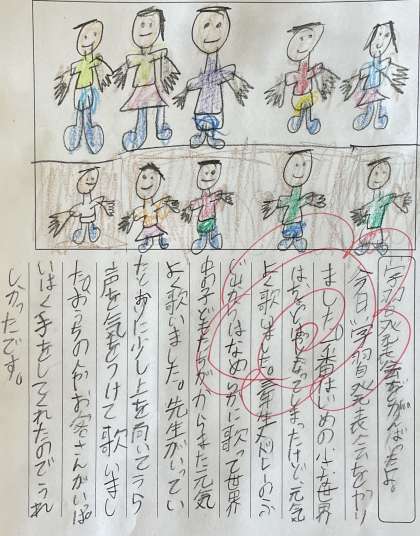 学習発表会をがんばったよ。
今日、学習発表会をやり
ました。一番はじめの小さな世界
はちょっときんちょうしてしまったけど元気
よく歌いました。
じ出からはなめらかに歌って世界
中の子どもたちがからまた元気
よく歌いました。先生がいってい
たとおりに少し上を向いてうら
声を気をつけて歌いまし
た。おうちの人やお客さんがいっぱ
いはく手をしてくれたのでうれ
しかったです。